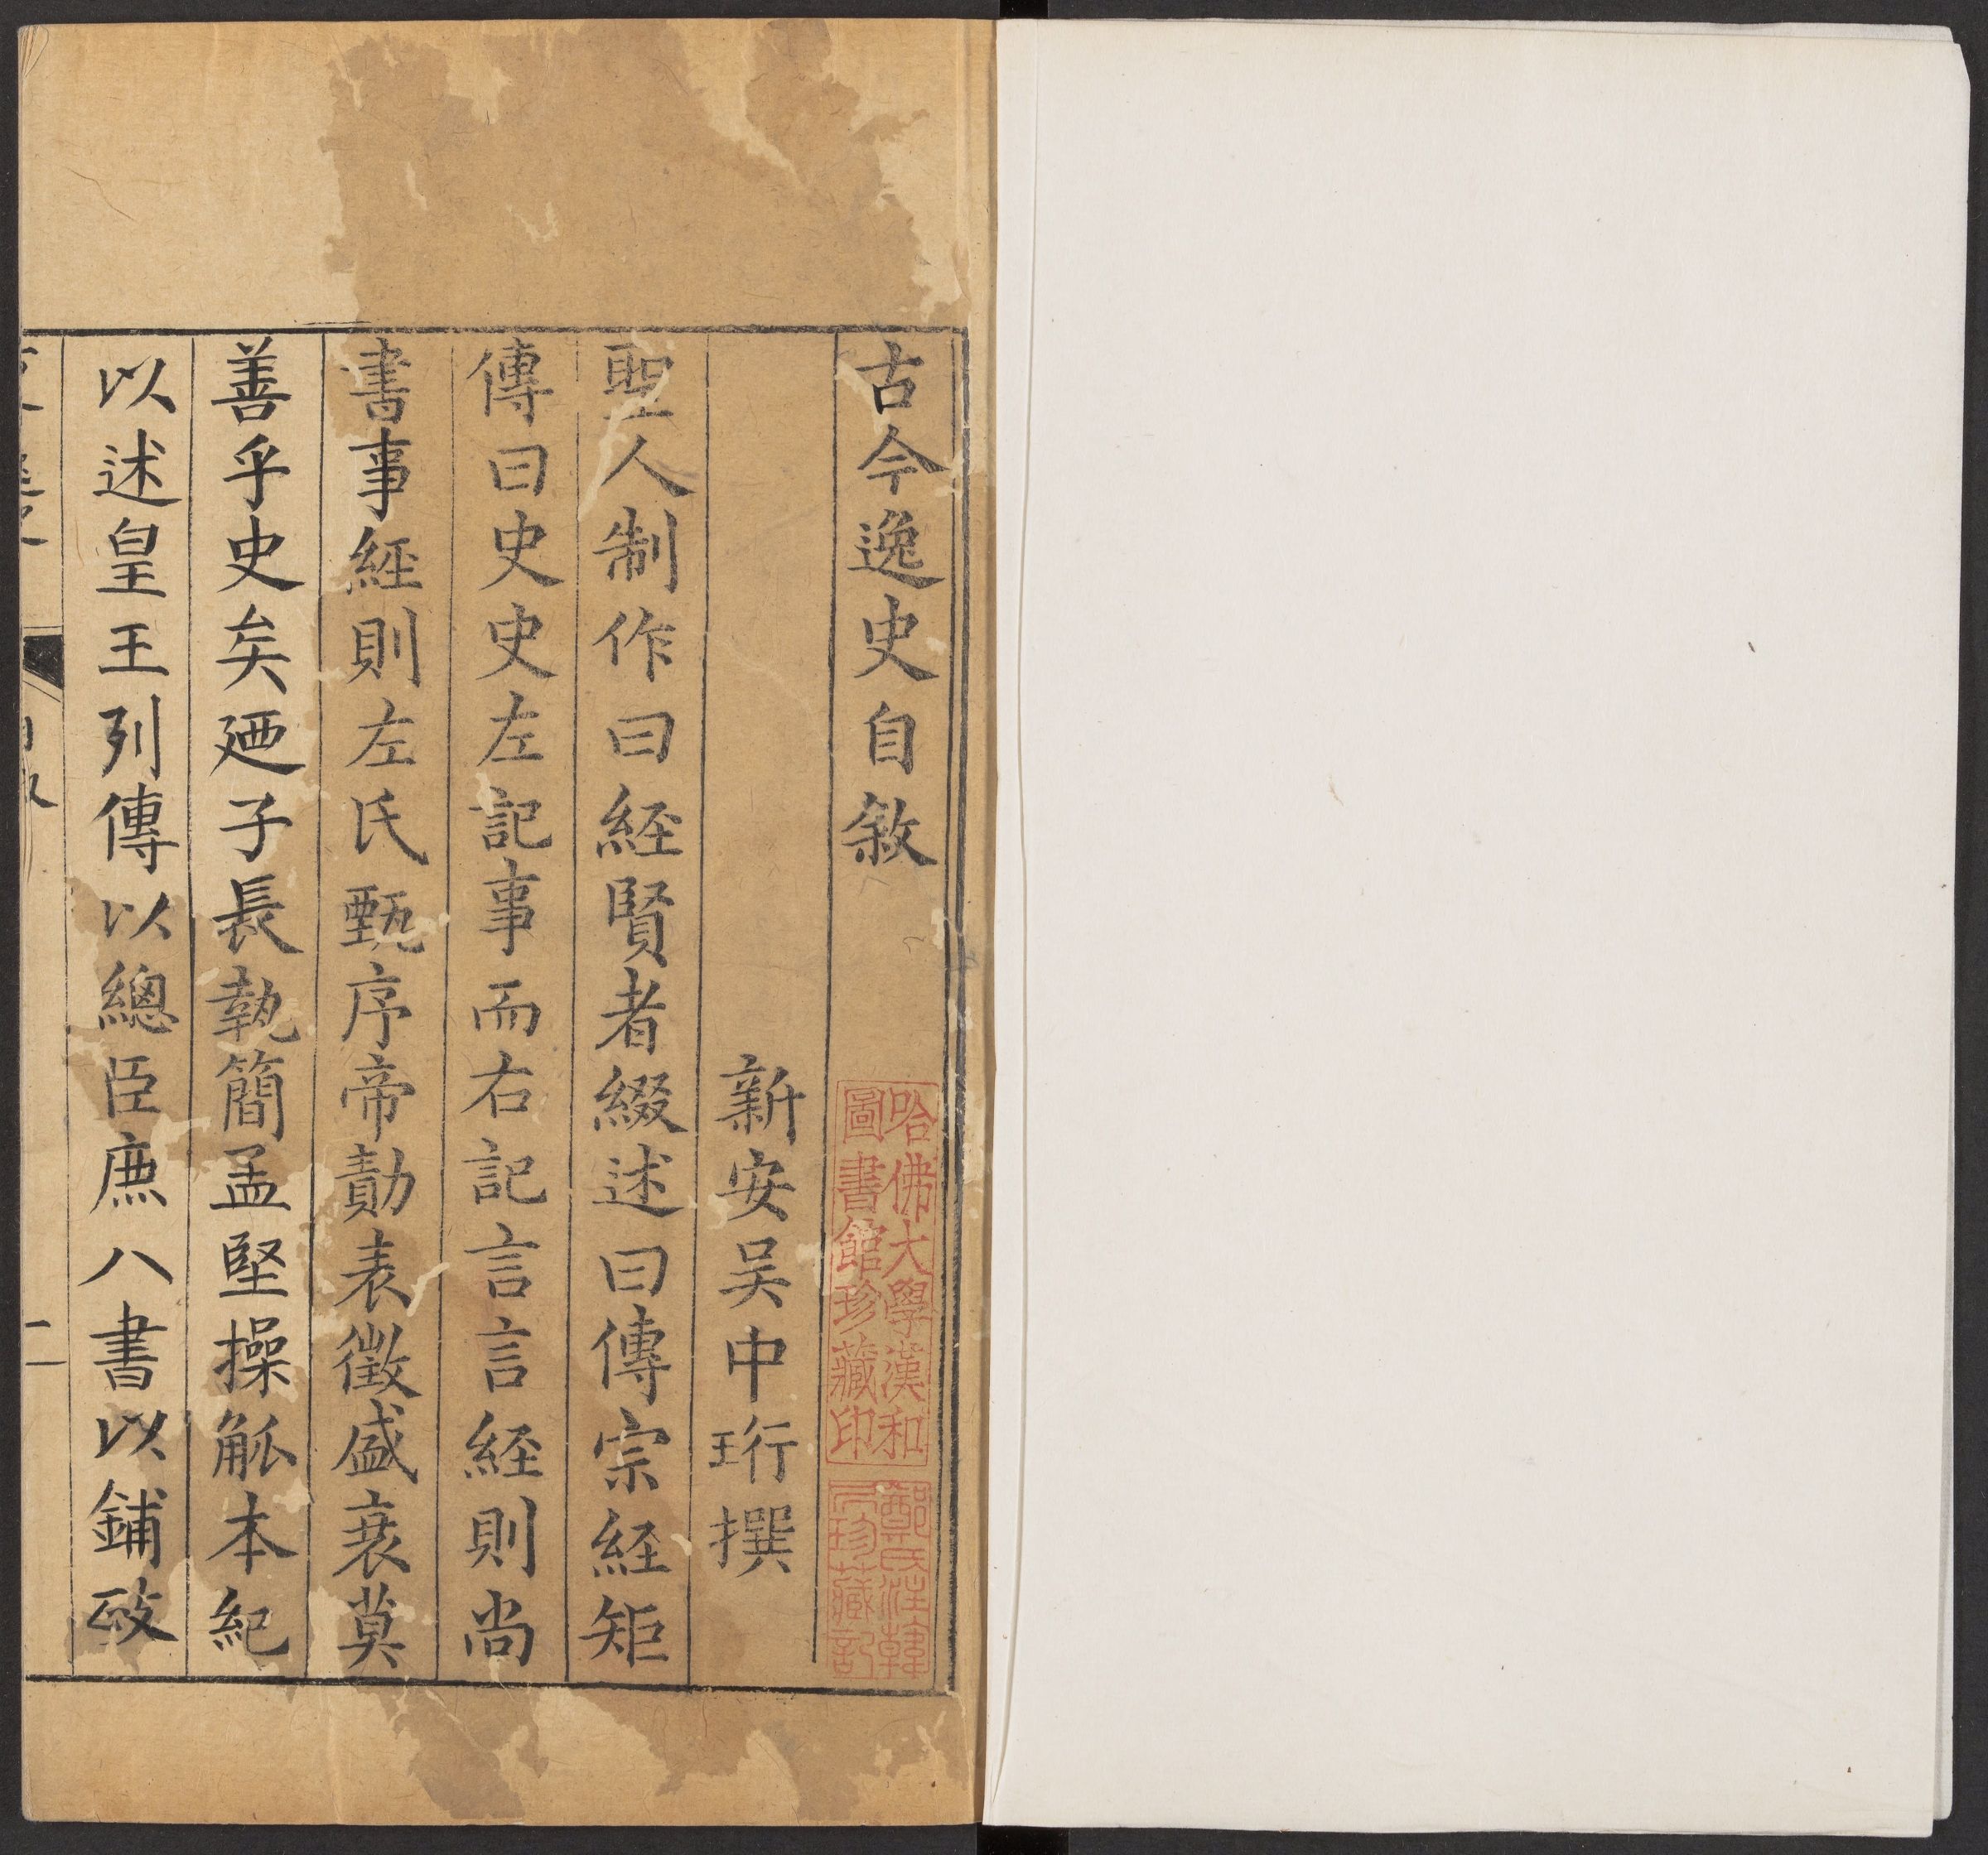 古今逸史自敘
哈佛大學漢和
圖書館珍藏印
鄭氏注韓
尺珍藏記
新安吴中珩撰
聖人制作曰經賢者綴述曰傳宗經矩
傳曰史史左記事而右記言言経則尚
書事經則左氏甄序帝勣表徵盛衰莫
善乎史矣廼子長執簡孟堅操觚本紀
以述皇王列傳以總臣庶八書以鋪政